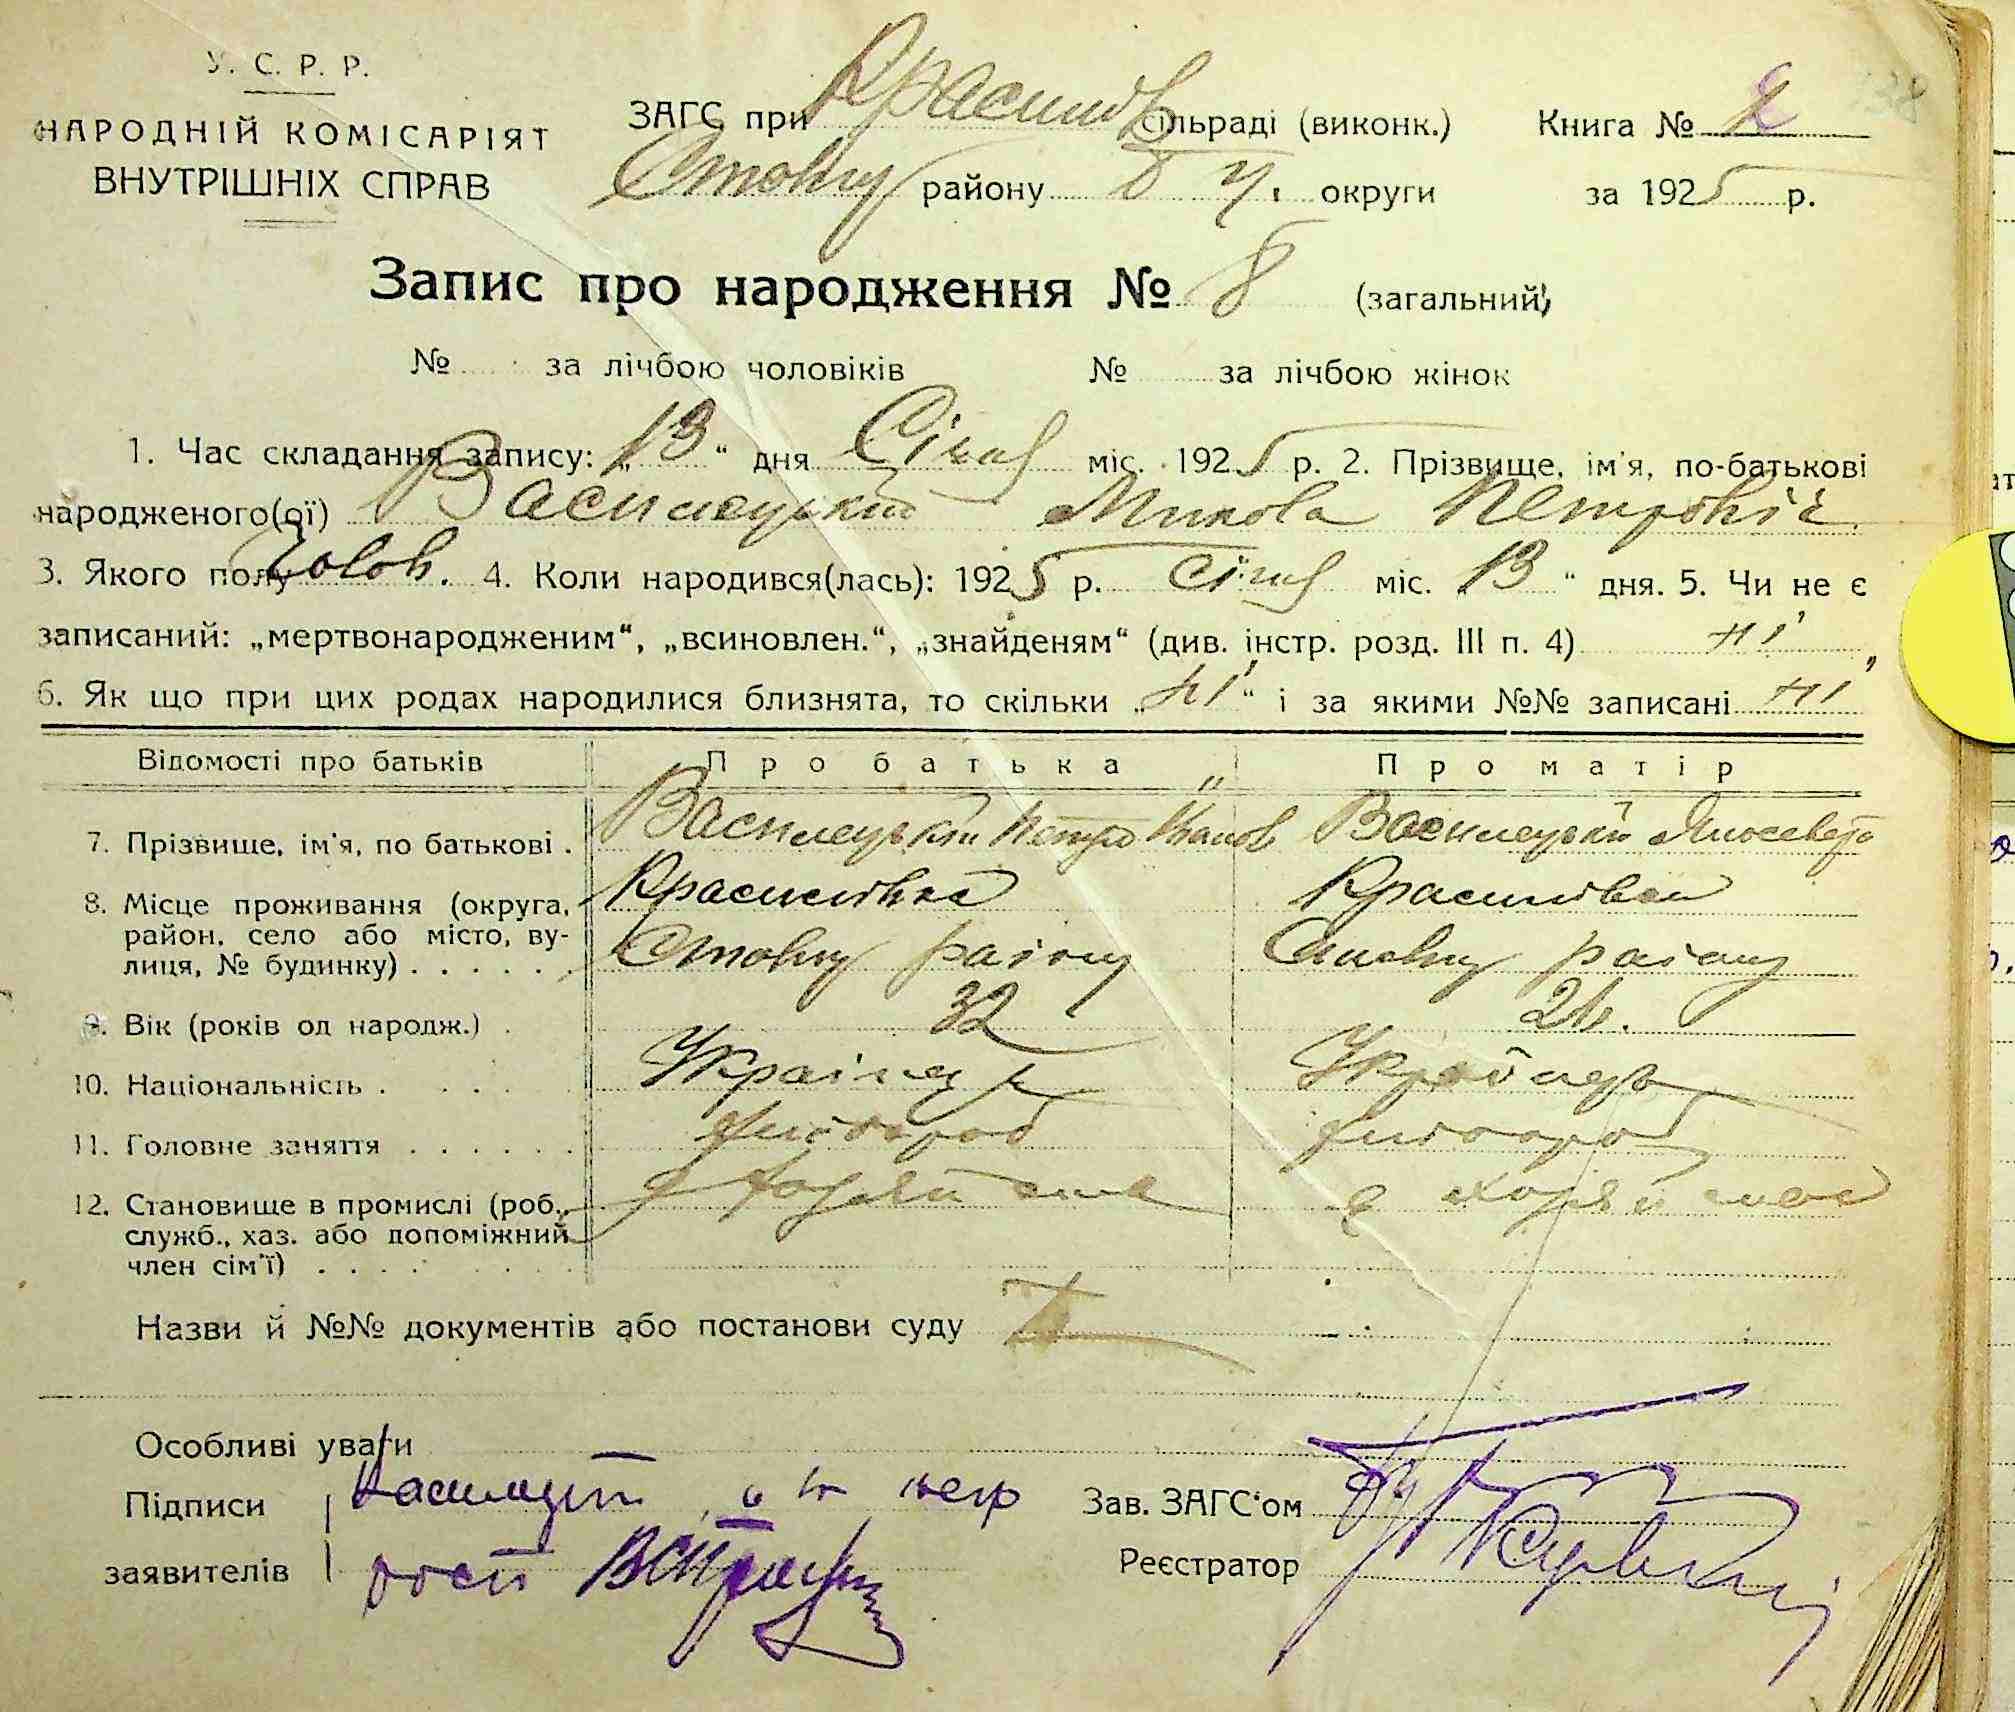 У. С. Р. Р.
НАРОДНІЙ КОМІСАРІЯТ
ВНУТРІШНІХ СПРАВ
ЗАГС при Красилів сільраді (виконк.) Книга № 2
району округи за 1925 р.
Запис про народження № 8 (загальний)
№ за лічбою чоловіків № за лічбою жінок
1. Час складання запису: „13“ дня Січня міс. 1925 р. 2. Прізвище, ім'я, по-батькові
народженого(ої) Василецький Микола Петровіч
3. Якого полу Чолов. 4. Коли народився(лась): 1925 р. Січня міс. „13“ дня. 5. Чи не є
записаний: „мертвонародженим“, „всиновлен.“, „знайденям“ (див. інстр. розд. III п. 4) ні
6. Як що при цих родах народилися близнята, то скільки „ні“ і за якими №№ записані ні
Відомості про батьків Про батька Про матір
7. Прізвище, ім'я, по батькові . Василецькій Петро Иванов Василецькій
8. Місце проживання (округа, район, село або місто, вулиця, № будинку) . . . . . Красилівка району Красилівка району
9. Вік (років од народж.) . 32
10. Національність . . . . Українець
11. Головне заняття . . . . . . хлібороб хлібороб
12. Становище в промислі (роб.,
служб., хаз. або допоміжний
член сім'ї) . . . .
Назви й №№ документів або постанови суду
Особливі уваги
Підписи Зав. ЗАГС'ом
заявителів Реєстратор